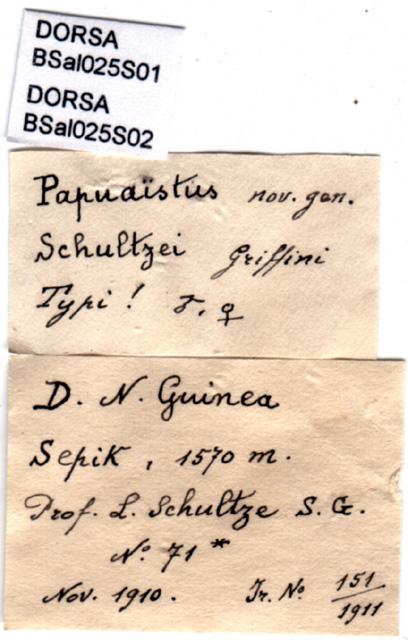 DORSA
BSal025S01
DORSA
BSal025S02
Papuaïstus nov. gen.
Schultzei Griffini
Typi! ♂, ♀
D. N. Guinea
Sepik, 1570 m.
Prof. L. Schultze S. G.
No 71 *
Nov. 1910. Jr. No 151/1911